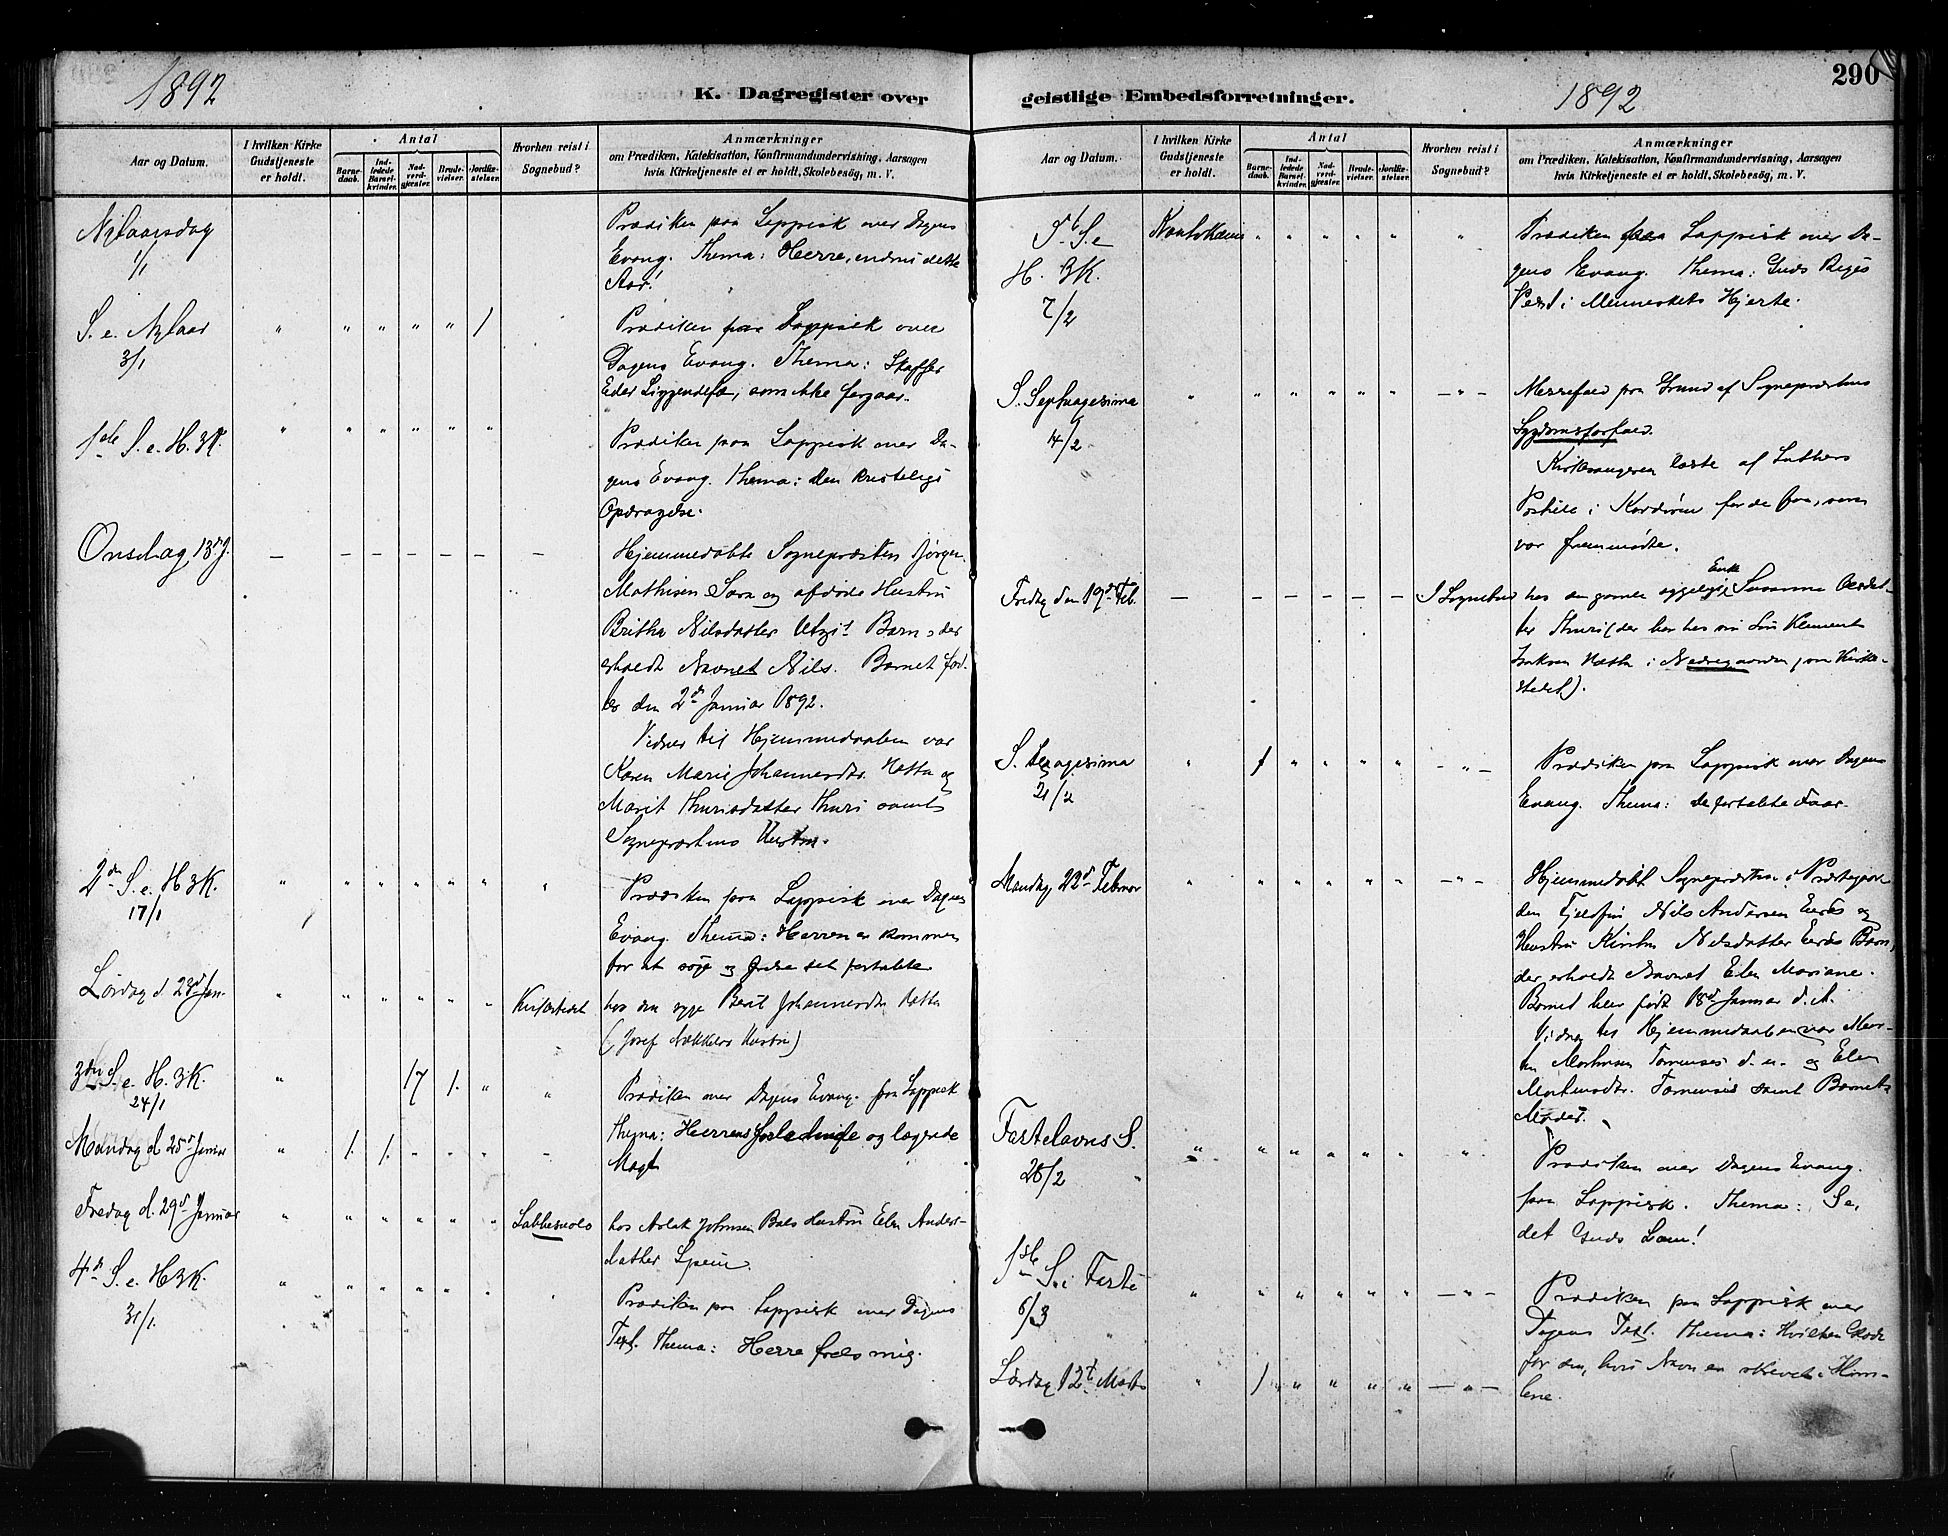 1892
K. Dagregister over
Aar og Datum.
I hvilken Kirke Gudstjeneste er holdt.
Antal
Barnedaab.
Indledede Barselkvinder.
Nadverdgjester.
Brudevielser.
Jordfæstelser.
Hvorhen reist i Sognebud?
Anmærkninger
om Prædiken, Katekisation, Konfirmandundervisning, Aarsagen
hvis Kirketjeneste ei er holdt, Skolebesög, m. V.
Nytaarsdag
1/1
Prædiken paa Lappisk over Dagens
Evang. Thema: Herre, endnu dette
Aar!
S. e. Nytaar
3/1
" " " " " 1
Prædiken paa Lappisk over
Dagens Evang. Thema: Skaffer
Eder Liggendefæ, som ikke forgaar.
1ste S. e. H. 3K.
" " " " " "
Prædiken paa Lappisk over Da-
gens Evang. Thema: den kristelige
Opdragelse.
Onsdag 13de J.
– – – – – – –
Hjemmedøbte Sognepræsten Jörgen
Mathisen Sara og afdøde Hustru
Britha Nilsdatter Utzis Barn, der
erholdt Navnet Nils. Barnet föd-
tes den 2den Januar 1892.
Vidner til Hjemmedaaben var
Karen Marie Johannesdtr. Hætta og
Marit Thurisdatter Thuri samt
Sognepræstens Hustru.
2den S. e. H3K.
17/1
" " " " " " "
Prædiken paa Lappisk over Dagens
Evang. Thema: Herren er kommen
for at söge og frelse det fortabte
Lördag d. 23de Jan.
" " " " " "
Kirkestedet
hos den syge Berit Johannesdtr Hætta
(Josef Nækkelas Hustru)
3die S. e. H. 3K.
24/1
" 17 1. " "
Prædiken over Dagens Evang. paa Lappisk
Thema: Herrens forladende og lægende
Magt
Mandag d. 25de Januar
" 1. 1. " " " –
Fredag d. 29de Januar
" " " " " "
Labbesuolo
hos Aslak Johnsen Bals Hustru Elen Anders-
datter Spein.
4de S. e. H3K.
31/1.
" " " " " " "
Prædiken paa Lappisk over Dagens
Text. Thema: Herre frels mig.
290
geistlige Embedsforretninger.
1892
Aar og Datum.
I hvilken Kirke Gudstjeneste er holdt.
Antal
Barnedaab.
Indledede Barselkvinder.
Nadverdgjester.
Brudevielser.
Jordfæstelser.
Hvorhen reist i Sognebud?
Anmærkninger
om Prædiken, Katekisation, Konfirmandundervisning, Aarsagen
hvis Kirketjeneste ei er holdt, Skolebesög, m. V.
5te S. e
H. 3K.
7/2
Kautokeino " " " " " "
Prædiken paa Lappisk over Da-
gens Evang. Thema: Guds Riges
Vext i Menneskets Hjerte.
S. Septuagesima
14/2
" " " " " " – " –
Messefald paa Grund af Sognepræstens
Sygdomsforfald.
Kirkesangeren læste af Luthers
Postille i Korddören for de faa, som
var fremmødte.
Fredag den 19de Feb.
– – – – – –
I Sognebud hos den gamle sygelige Enke Susanne Olsdat-
ter Thuri (der bor hos sin Sön Klemet
Isaksen Hætta i Nedregaarden paa Kirke-
stedet).
S. Sexagesima
21/2
" 1 " " " " – " –
Prædiken paa Lappisk over Dagens
Evang. Thema: de fortabte Faar.
Mandag 22de Februar
" " " " " " – " –
Hjemmedöbt Sognepræsten i Præstegaar-
den Fjeldfin Nils Andersen Eiras og
Hustru Kirsten Nilsdatter Eiras Barn,
der erholdt Navnet Elen Mariane.
Barnet blev født 18de Januar d. A.
Vidner til Hjemmedaaben var Mor-
ten Mortensen Tornensis d. u. og Elen
Mortensdtr. Tornensis samt Barnets
Moder.
Fastelavns S.
28/2
" " " " " " "
Prædiken over Dagens Evang.
paa Lappisk. Thema: Se,
det Guds Lam!
1ste S. i Faste
6/3
" " " " " " – " –
Prædiken paa Lappisk over
Dagens Text. Thema: Hvilken Glæde
for den, hvis Navn er skrevet i Him-
lene.
Lördag 12te Marts
" 1 " " " " – " –